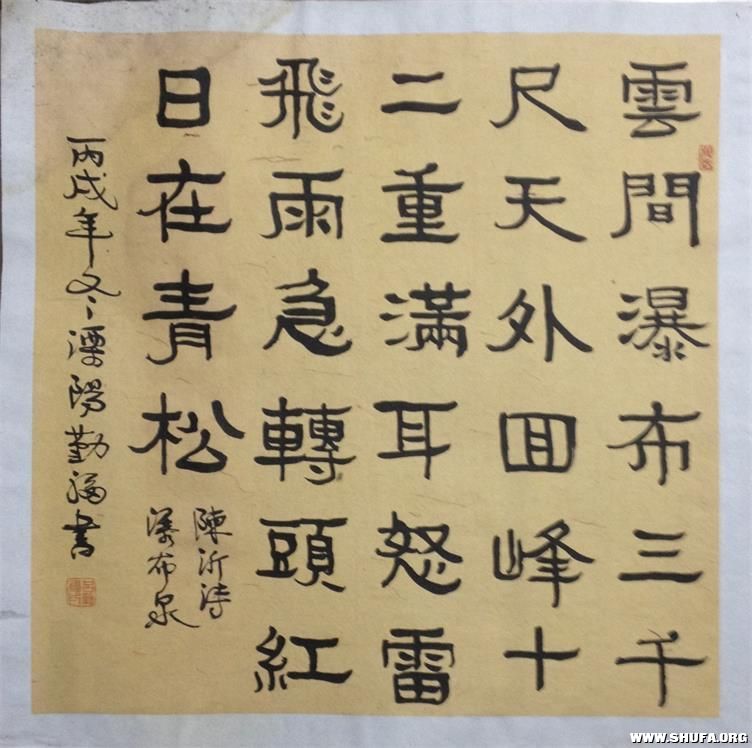 雲間瀑布三千
尺天外回峰十
二重滿耳怒雷
飛雨急轉頭紅
日在青松
陳沂詩
瀑布泉
丙戌年冬溧陽勤福書
WWW.SHUFA.ORG